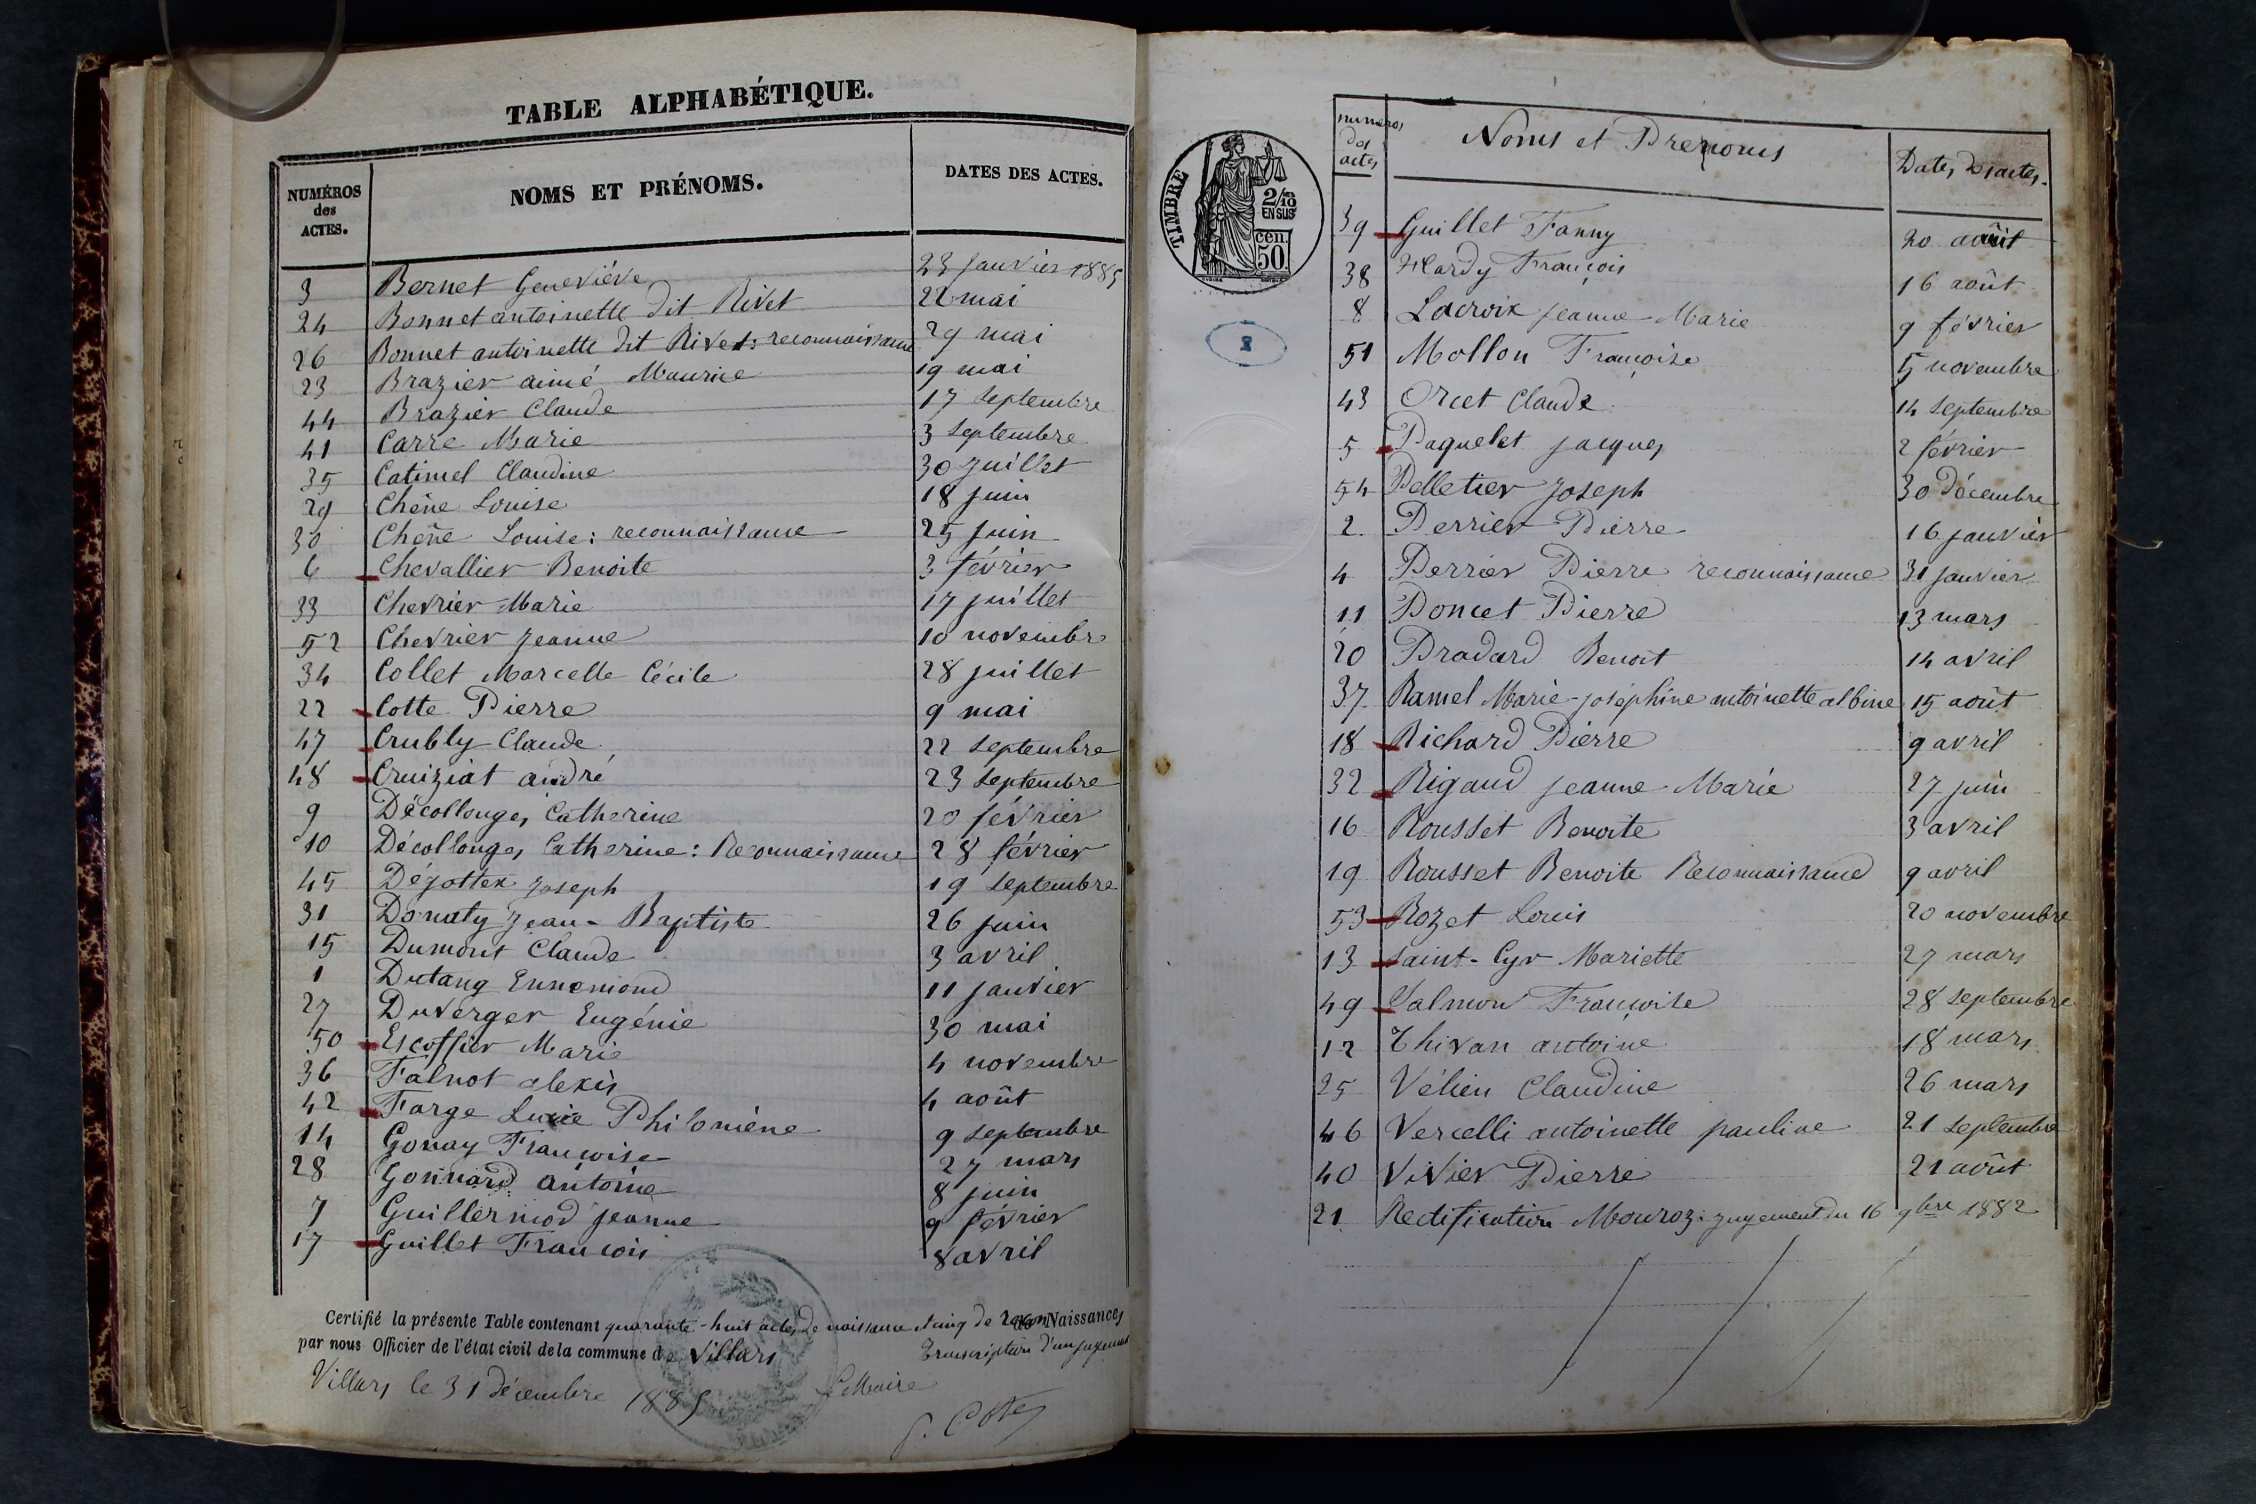 TABLE ALPHABÉTIQUE.
NUMÉROS des ACTES. NOMS ET PRÉNOMS. DATES DES ACTES.
3 Bernet Geneviève 23 janvier 1885
24 Bonnet antoinette dit Rivet 22 mai
26 Bonnet antoinette dit Rivet: reconnaissance 29 mai
23 Brazier aimé Maurice 19 mai
44 Brazier Claude 17 septembre
41 Carre Marie 3 septembre
35 Catimel Claudine 30 juillet
29 Chêne Louise 18 juin
30 Chêne Louise: reconnaissance 25 juin
6 Chevallier Benoite 3 février
33 Chevrier Marie 17 juillet
52 Chevrier jeanne 10 novembre
34 Collet Marcelle Cécile 28 juillet
22 Cotte Pierre 9 mai
47 Crubly Claude 22 septembre
48 Cruiziat andré 23 septembre
9 Décollonges Catherine 20 février
10 Décollonges Catherine: Reconnaissance 28 février
45 Déjottex joseph 19 septembre
31 Donaty jean-Baptiste 26 juin
15 Dumont Claude 3 avril
1 Dutang Ennemond 11 janvier
27 Duverger Eugénie 30 mai
50 Escoffier Marie 4 novembre
36 Falnot alexis 4 août
42 Farge Lucie Philomène 9 septembre
14 Gonay Françoise 27 mars
28 Gonnard antoine 8 juin
7 Guillermod jeanne 9 février
17 Guillet François 8 avril
Certifié la présente Table contenant quarante-huit actes de naissance cinq de Naissances
par nous Officier de l'état civil de la commune de Villars Transcription d'un jugement
Villars le 31 décembre 1885 Le Maire
TIMBRE
2/10
EN SUS
cen.
50
numéros des actes Noms et Prénoms Dates des actes.
39 Guillet Fanny 20 août
38 Hardy François 16 août
8 Lacroix jeanne-Marie 9 février
51 Mollon Françoise 5 novembre
43 Orcet Claude 14 septembre
5 Paquelet jacques 2 février
54 Pelletier joseph 30 décembre
2 Perrier Pierre 16 janvier
4 Perrier Pierre reconnaissance 31 janvier
11 Poncet Pierre 13 mars
20 Pradard Benoit 14 avril
37 Ramel Marie-joséphine antoinette albine 15 août
18 Richard Pierre 9 avril
32 Rigaud jeanne-Marie 27 juin
16 Rousset Benoite 3 avril
19 Rousset Benoite Reconnaissance 9 avril
53 Rozet Louis 20 novembre
13 Saint-Cyr Mariette 27 mars
49 Salmon Françoise 28 septembre
12 Thivan antoine 18 mars
25 Vélien Claudine 26 mars
46 Vercelli antoinette pauline 21 septembre
40 Vivier Pierre 21 août
21 Rectification Mouroz: jugement du 16 9bre 1882